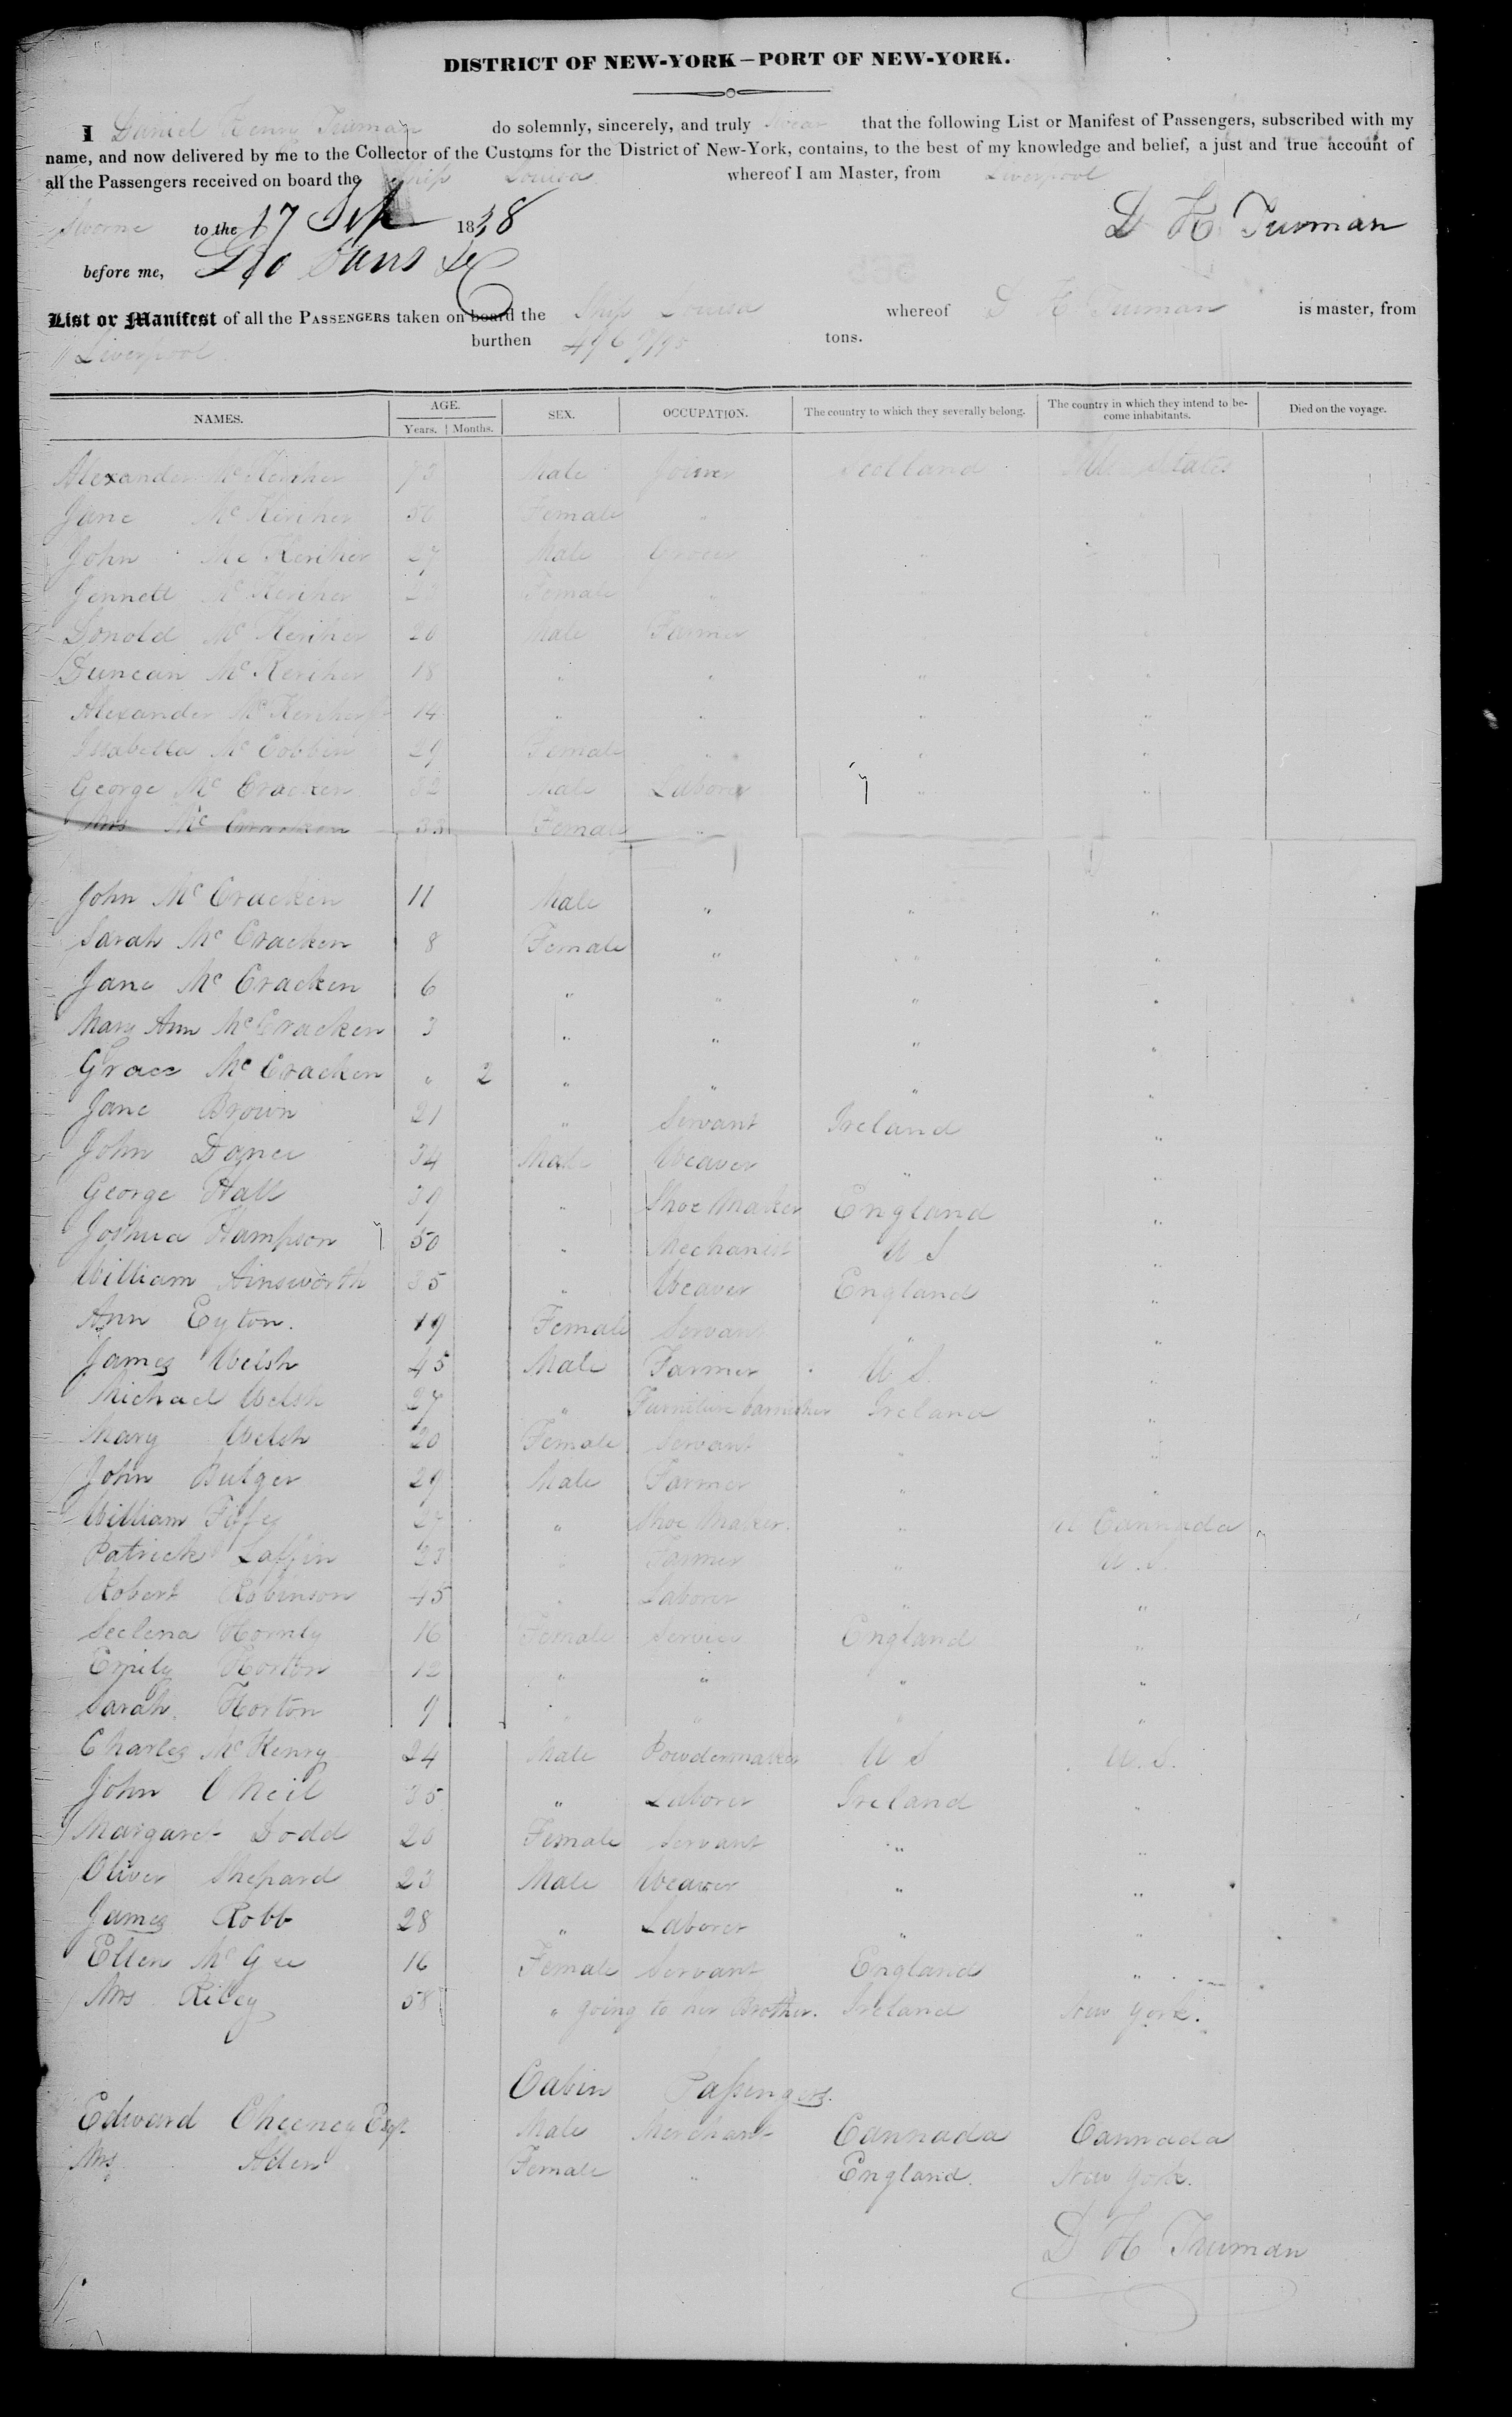 DISTRICT OF NEW-YORK—PORT OF NEW-YORK.
I Daniel Henry Truman do solemnly, sincerely, and truly swear that the following List or Manifest of Passengers, subscribed with my
name, and now delivered by me to the Collector of the Customs for the District of New-York, contains, to the best of my knowledge and belief, a just and true account of
all the Passengers received on board the Ship Louisa whereof I am Master, from Liverpool
Sworne to the 17 Sep 1838 D H Truman
before me,
List or Manifest of all the PASSENGERS taken on board the Ship Louisa whereof D H Truman is master, from
Liverpool burthen tons.
NAMES. AGE. SEX. OCCUPATION. The country to which they severally belong. The country in which they intend to be-come inhabitants. Died on the voyage.
Years. Months.
Alexander McKericher 73 Male Joiner Scotland States
Jane McKericher 50 Female "
John McKericher 27 Male Grocer " "
Jennett McKericher 22 Female "
Donold McKericher 20 Male Farmer "
Duncan McKericher 18 " " " "
Alexander McKericher 14 " " " "
Issabella McCobbin 29 Female " " "
George McCracken 32 Male Laborer " "
Mrs McCracken 33 Female "
John McCracken 11 Male " " "
Sarah McCracken 8 Female " " "
Jane McCracken 6 " " " "
Mary Ann McCracken 3 " " " "
Grace McCracken " 2 " " " "
Jane Brown 21 " Servant Ireland "
John 34 Male Weaver " "
George Hall 39 " Shoe Maker England "
Joshua Hampson 50 " Mechanist U S "
William Ainsworth 35 " Weaver England "
Ann Eyton. 19 Female Servant " "
James Welsh 45 Male Farmer U S. "
Michael Welsh 27 " Furniture Varnisher Ireland "
Mary Welsh 20 Female Servant " "
John Bulger 29 Male Farmer " "
William Fifey 27 " Shoe Maker. " U Cannada
Patrick Laffin 23 " Farmer " U.S.
Robert Robinson 45 " Laborer " "
Seelena Hornly 16 Female Service England "
Emily Horton 12 " " " "
Sarah. Horton 9 " " " "
Charles McHenry 24 Male Powdermaker U S U.S.
John O Neil 35 " Laborer Ireland "
Margaret Dodd 20 Female Servant " "
Oliver Shepard 23 Male Weaver " "
James Robb 28 " Laborer " "
Ellen McGee 16 Female Servant England "
Mrs Riley 58 " going to her Brother. Ireland New York.
Cabin Passengers.
Edward Cheeney Esqr. Male Merchant Cannada Cannada
Mrs Allen Female " England. New York.
D H Truman